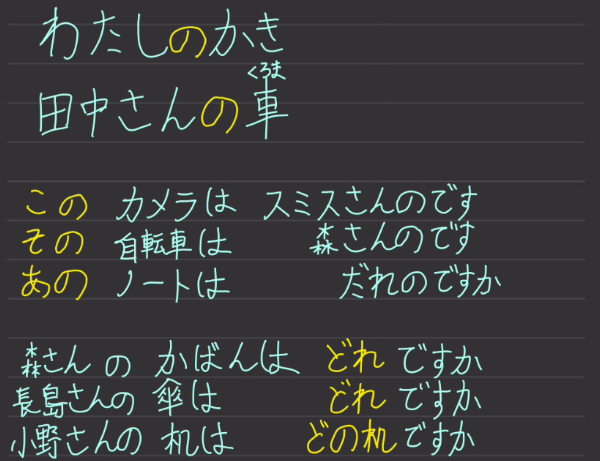 わたしのかき
くるま
田中さんの車
この カメラは スミスさんのです
その 自転車は 森さんのです
あの ノートは だれのですか
森さん の かばんは どれ ですか
長島さんの 傘は どれ ですか
小野さんの 机は どの机ですか